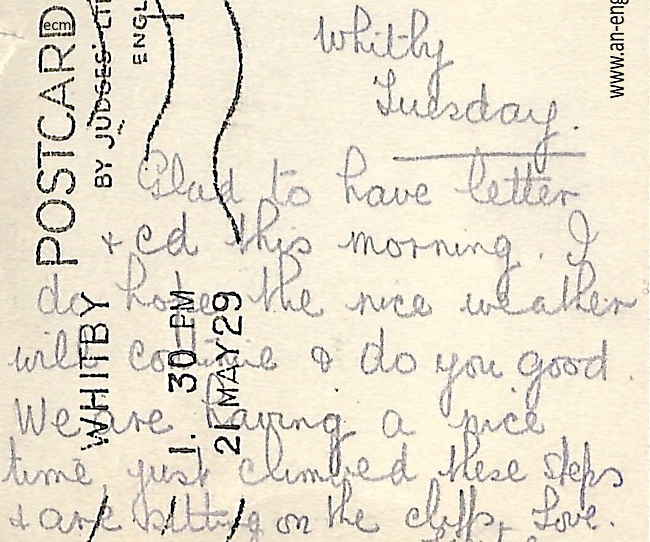 Whitby
Tuesday.
Glad to have letter
+ cd this morning. I
do hope the nice weather
will continue & do you good.
We are having a nice
time, just climbed these steps
& are sitting on the cliffs. Love.
POSTCARD
BY JUDGES' LT
ENGL
WHITBY
1. 30 PM
21 MAY 29
ecm
www.an-eng